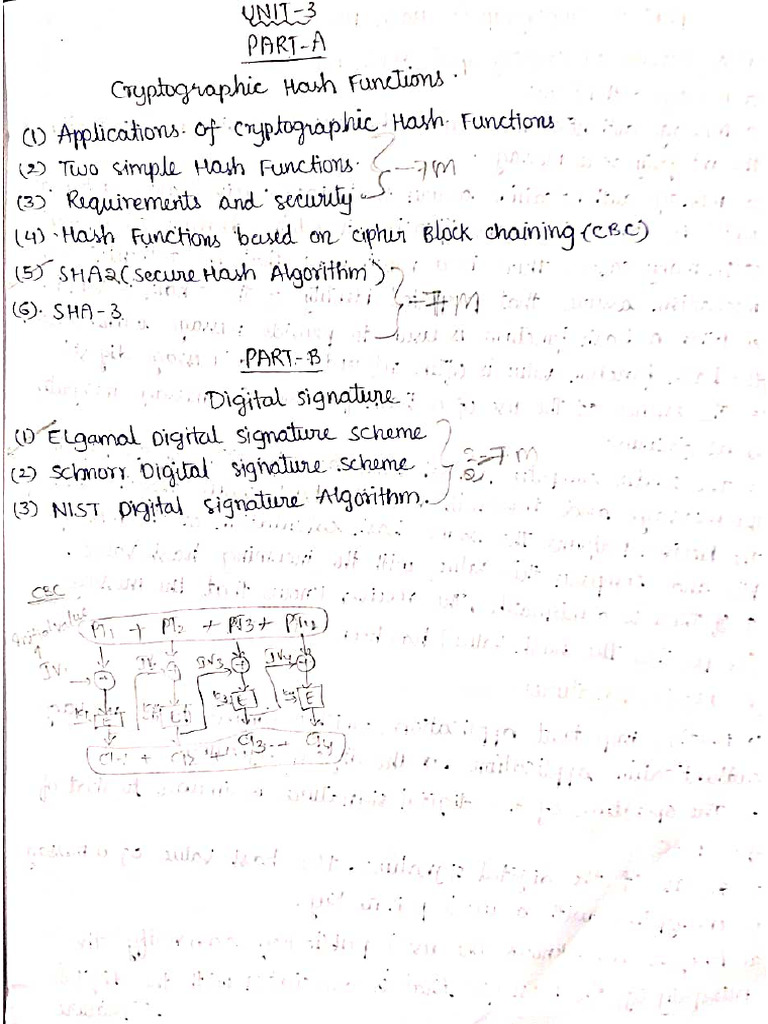 UNIT-3
PART-A
Cryptographic Hash Functions.
(1) Applications of Cryptographic Hash Functions :
(2) Two simple Hash Functions. — 7M
(3) Requirements and security
(4) Hash Functions based on cipher Block chaining (CBC)
(5) SHA2 (Secure Hash Algorithm)
(6). SHA-3 7M
PART-B
Digital signature :
(1) ELgamal Digital signature scheme
(2) Schnorr Digital signature scheme. 7M
(3) NIST Digital Signature Algorithm.
CBC
PT1 + PT2 + PT3 +
IV IV3 IV4
E E
+ CT3 +